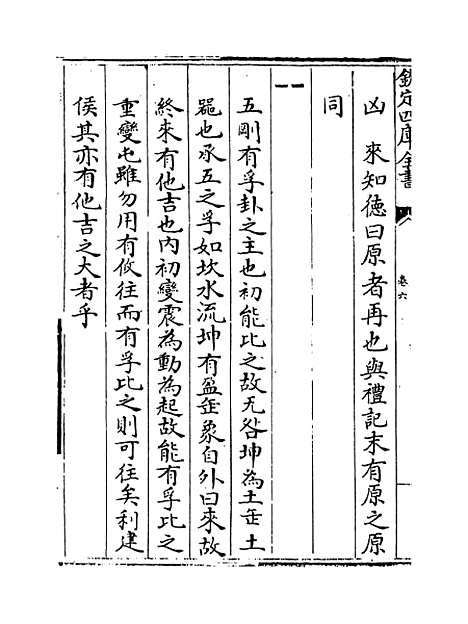 欽定四庫全書
卷六
凶　來知德曰原者再也與禮記末有原之原
同
五剛有孚卦之主也初能比之故无咎坤為土缶土
器也承五之孚如坎水流坤有盈缶象自外曰來故
終來有他吉也內初變震為動為起故能有孚比之
重變屯雖勿用有攸往而有孚比之則可往矣利建
侯其亦有他吉之大者乎